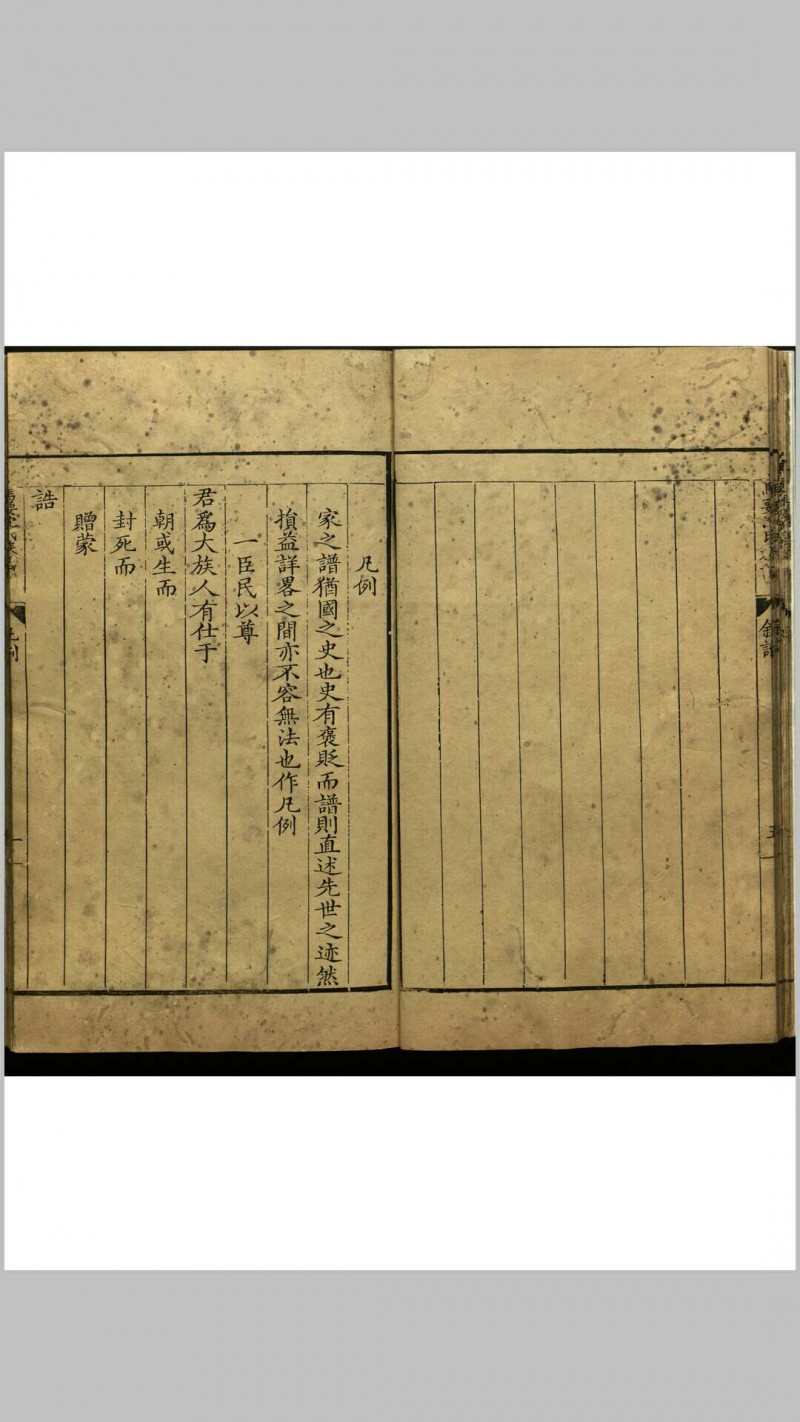 敘譜
五
凡例
家之譜猶國之史也史有褒貶而譜則直述先世之迹然
損益詳畧之間亦不容無法也作凡例
一臣民以尊
君爲大族人有仕于
朝或生而
封死而
贈蒙
誥
凡例
一